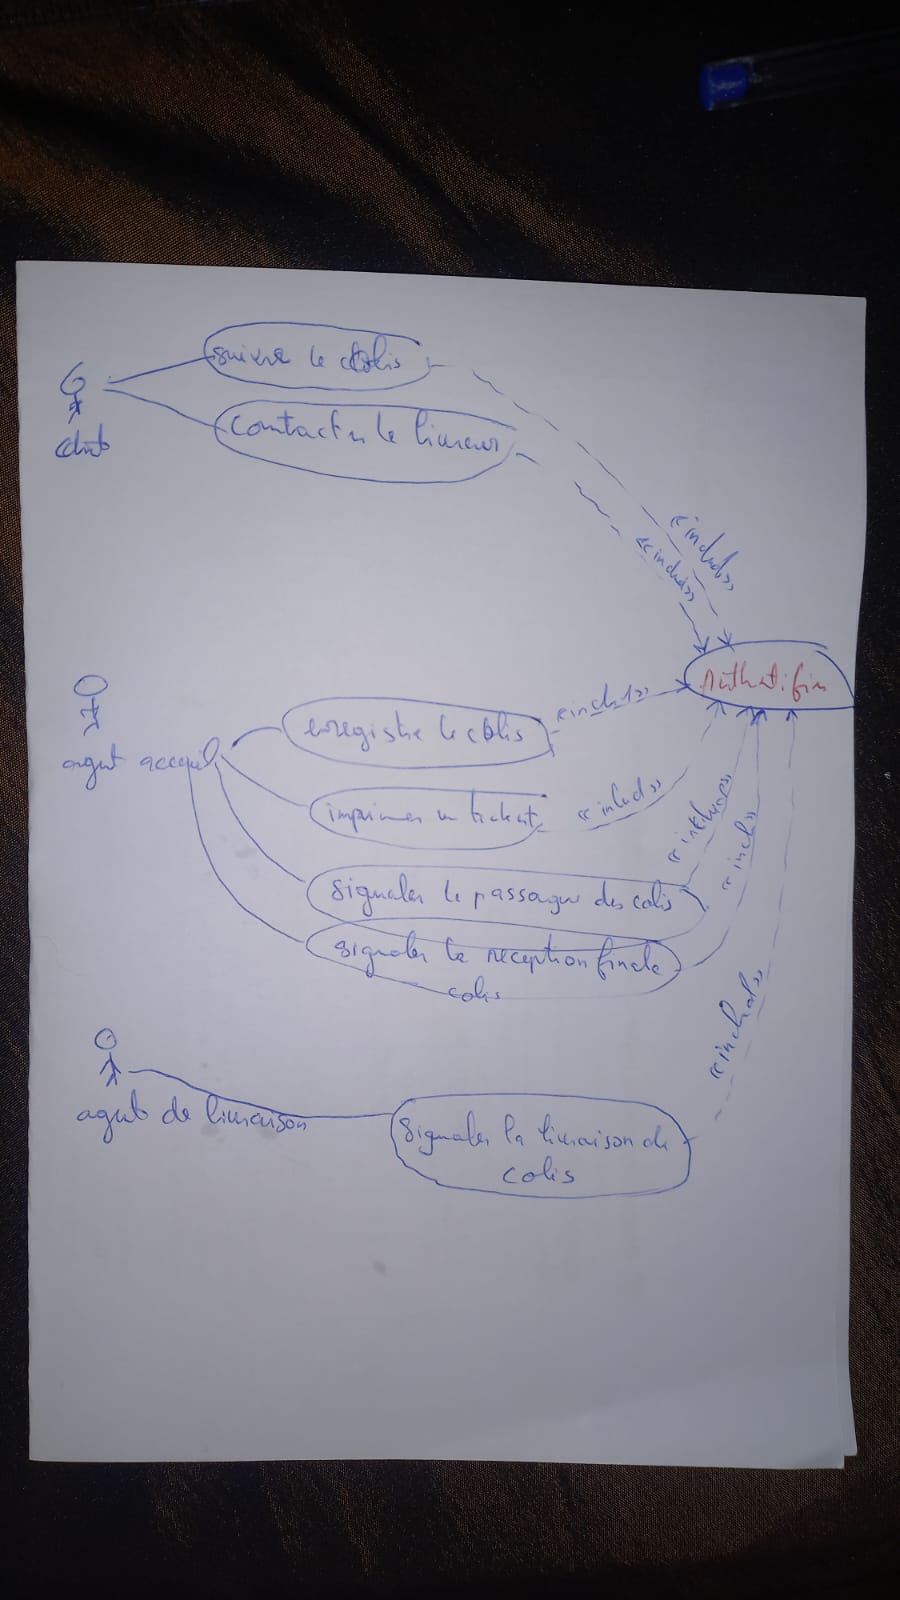 suivre le colis
client
contacter le livreur
«include»
«include»
Authentifier
agent acceuil
enregistre le colis
«include»
imprimer un ticket
«include»
«include»
«include»
signaler le passage des colis
signaler la reception finale
colis
«include»
agent de livraison
signaler la livraison de
colis